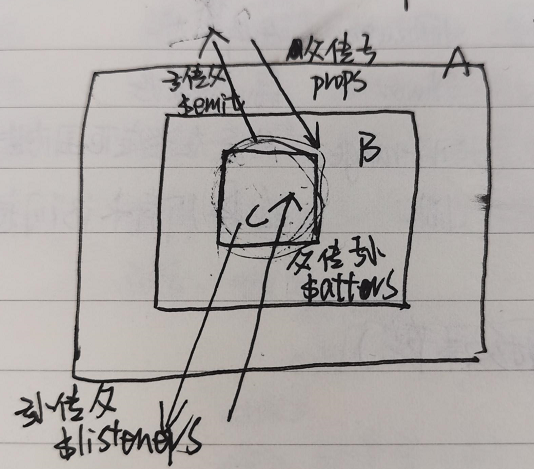 父传子
props
A
子传父
$emit
B
C
父传孙
$attors
孙传父
$listeners